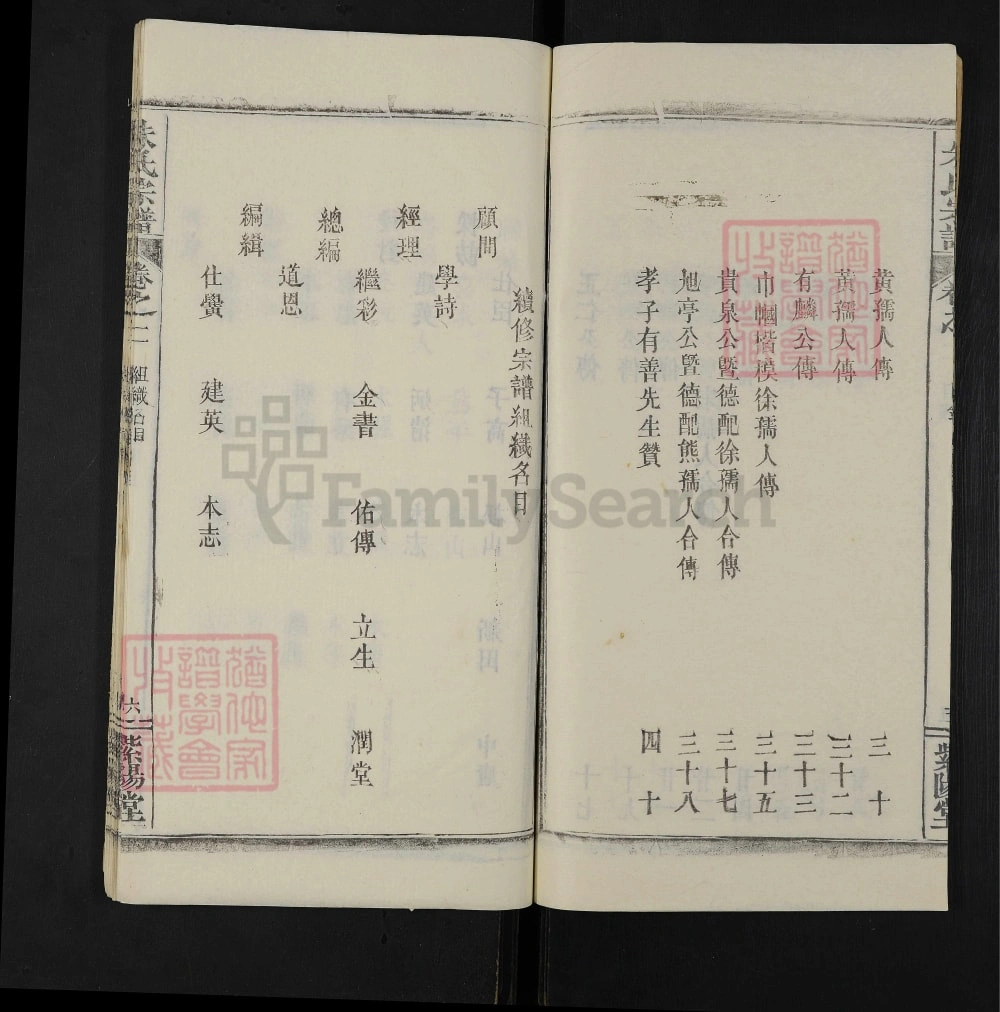 黄孺人傳 三十
黃孺人傳 三十二
有麟公傳 三十三
巾幗楷模徐孺人傳 三十五
貴泉公暨德配徐孺人合傳 三十七
旭亭公暨德配熊孺人合傳 三十八
孝子有善先生贊 四十
續修宗譜組織名目
顧問
學詩
經理
繼彩 金書 佑傳 立生 潤堂
總編
道恩
編緝
仕黌 建英 本志
朱氏宗譜 卷之一 組織名目 六 紫陽堂
FamilySearch